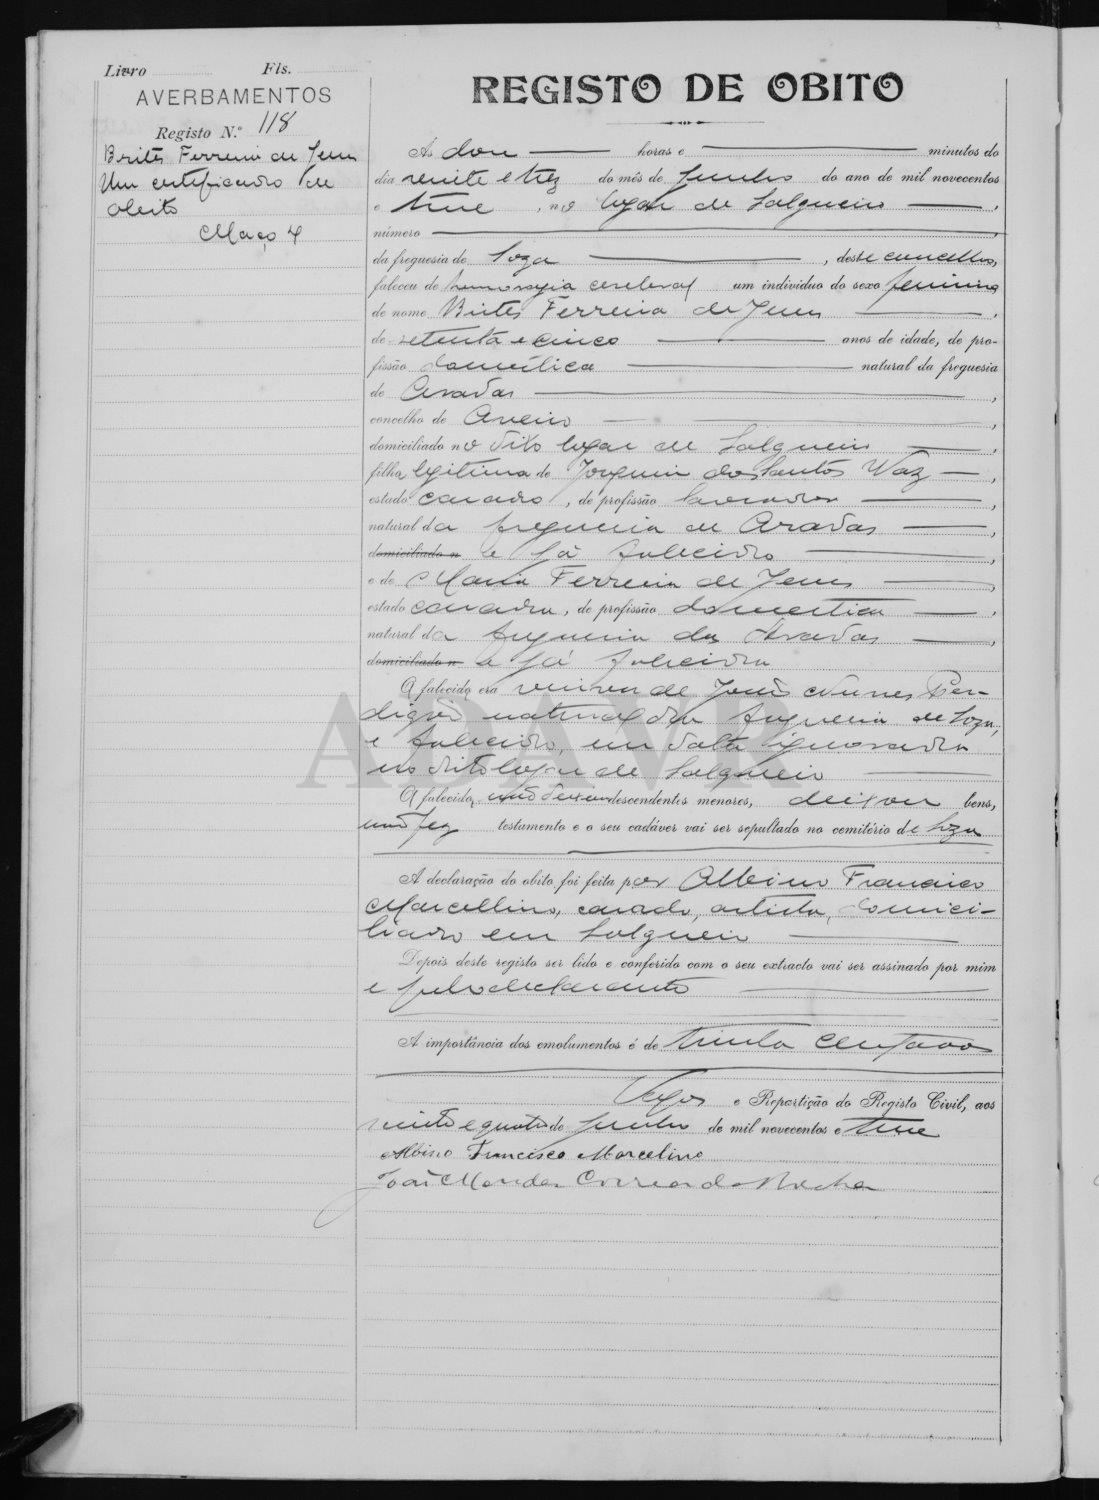 Livro Fls.
AVERBAMENTOS
Registo N.º 118
Brites Ferreira de Jesus
Um certificado de
obito
Maço 4
REGISTO DE OBITO
Ás doze horas e minutos do
dia vinte e trez do mês de Junho do ano de mil novecentos
e treze, no lugar de Salgueiro,
número
da freguesia de Soza, deste concelho,
faleceu de hemorragia cerebral um individuo do sexo feminino
de nome Brites Ferreira de Jesus,
de setenta e cinco anos de idade, de pro-
fissão domestica natural da freguesia
de Aradas,
concelho de Aveiro,
domiciliado no dito lugar de Salgueiro,
filha legitima de Joaquim dos Santos Vaz,
estado casado, de profissão lavrador,
natural da freguesia de Aradas,
domiciliado n e já falecido,
e de Maria Ferreira de Jesus,
estado casada, de profissão domestica,
natural da freguesia das Aradas,
domiciliado n e já falecida
A falecida era viuva de José Nunes Per-
digão natural da freguesia de Soza,
e falecido, em data ignorada
no dito lugar de Salgueiro
A falecida não deixou descendentes menores, deixou bens,
não fez testamento e o seu cadáver vai ser sepultado no cemitério de Soza
A declaração do obito foi feita por Albino Francisco
Marcellino, casado, artista, domici-
liado em Salgueiro
Depois deste registo ser lido e conferido com o seu extracto vai ser assinado por mim
e pelo declarante
A importância dos emolumentos é de trinta centavos
Vagos e Repartição do Registo Civil, aos
vinte e quatro de Junho de mil novecentos e treze
Albino Francisco Marcelino
João Mendes Correia da Rocha
ADAVR